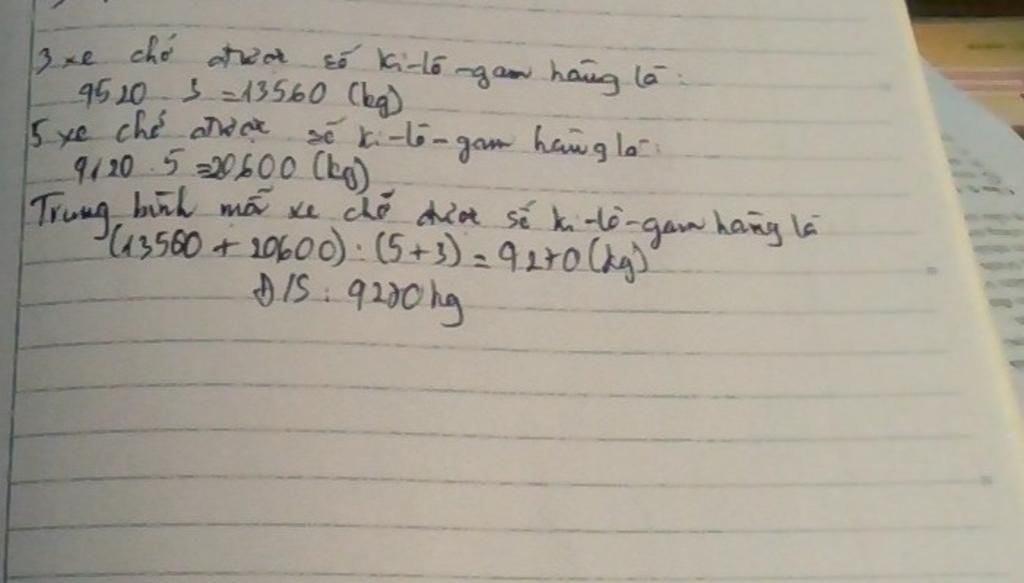 3 xe chở được số ki-lô-gam hàng là:
4520 . 3 = 13560 (kg)
5 xe chở được số ki-lô-gam hàng là:
4120 . 5 = 20600 (kg)
Trung bình mỗi xe chở được số ki-lô-gam hàng là
(13560 + 20600) : (5+3) = 4270 (kg)
Đ/S : 4270 kg